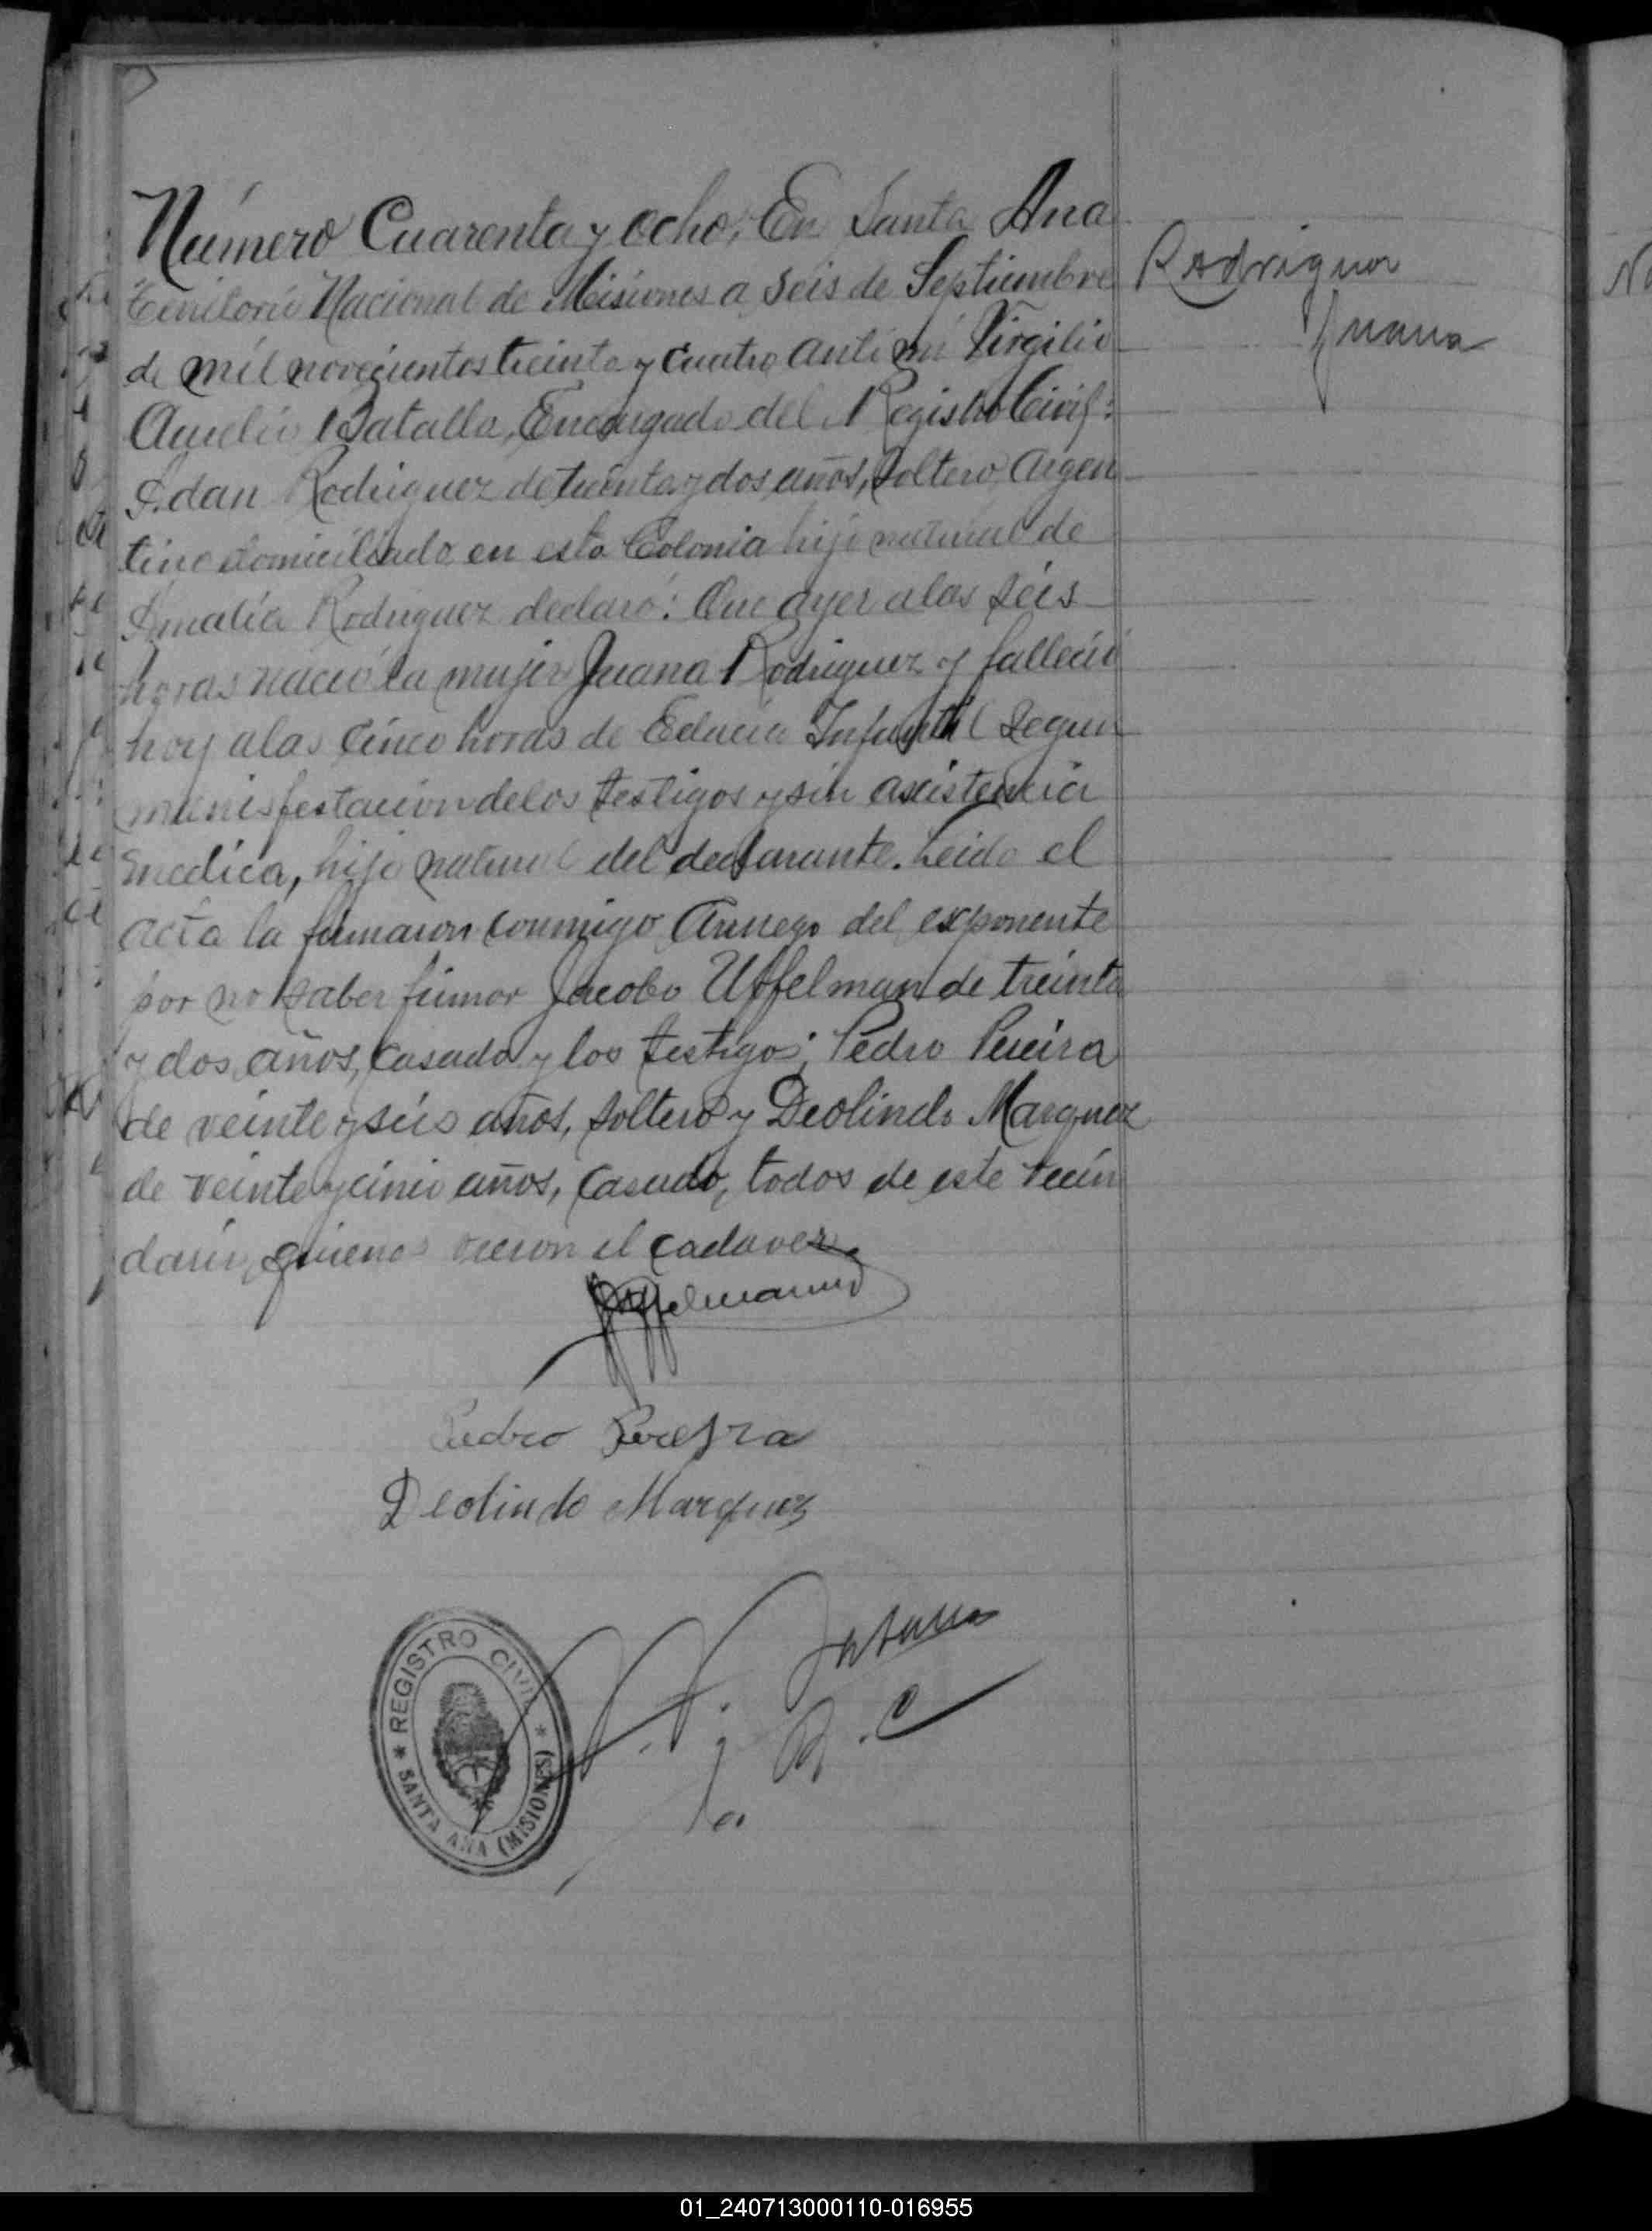 Número Cuarenta y ocho; En Santa Ana
Territorio Nacional de Misiones a seis de Septiembre
de mil novecientos treinta y cuatro Anti mi Virgilio
Aurelio Batalla, Encargado del Registro Civil:
Adan Rodriguez de treinta y dos años, soltero, Argen
tino domiciliado en esta Colonia hijo natural de
Amalia Rodriguez declaró: Que ayer a las seis
horas nació la mujer Juana Rodriguez y falleció
hoy a las cinco horas de Eclacia Infantil segun
manisfestacion de los testigos y sin asistencia
medica, hija natural del declarante. Leida el
acta la firmaron conmigo Arruego del exponente
por no saber firmar Jacobo Uffelman de treinta
y dos años, casado y los testigos; Pedro Pereira
de veinte y seis años, soltero y Deolindo Marquez
de veinte y cinco años, casado, todos de este vecin
dario, quienes vieron el cadaver.
Rodriguez
Juana
JUffelmann
Pedro Pereyra
Deolindo Marquez
REGISTRO CIVIL
SANTA ANA (MISIONES)
R. C
01_240713000110-016955